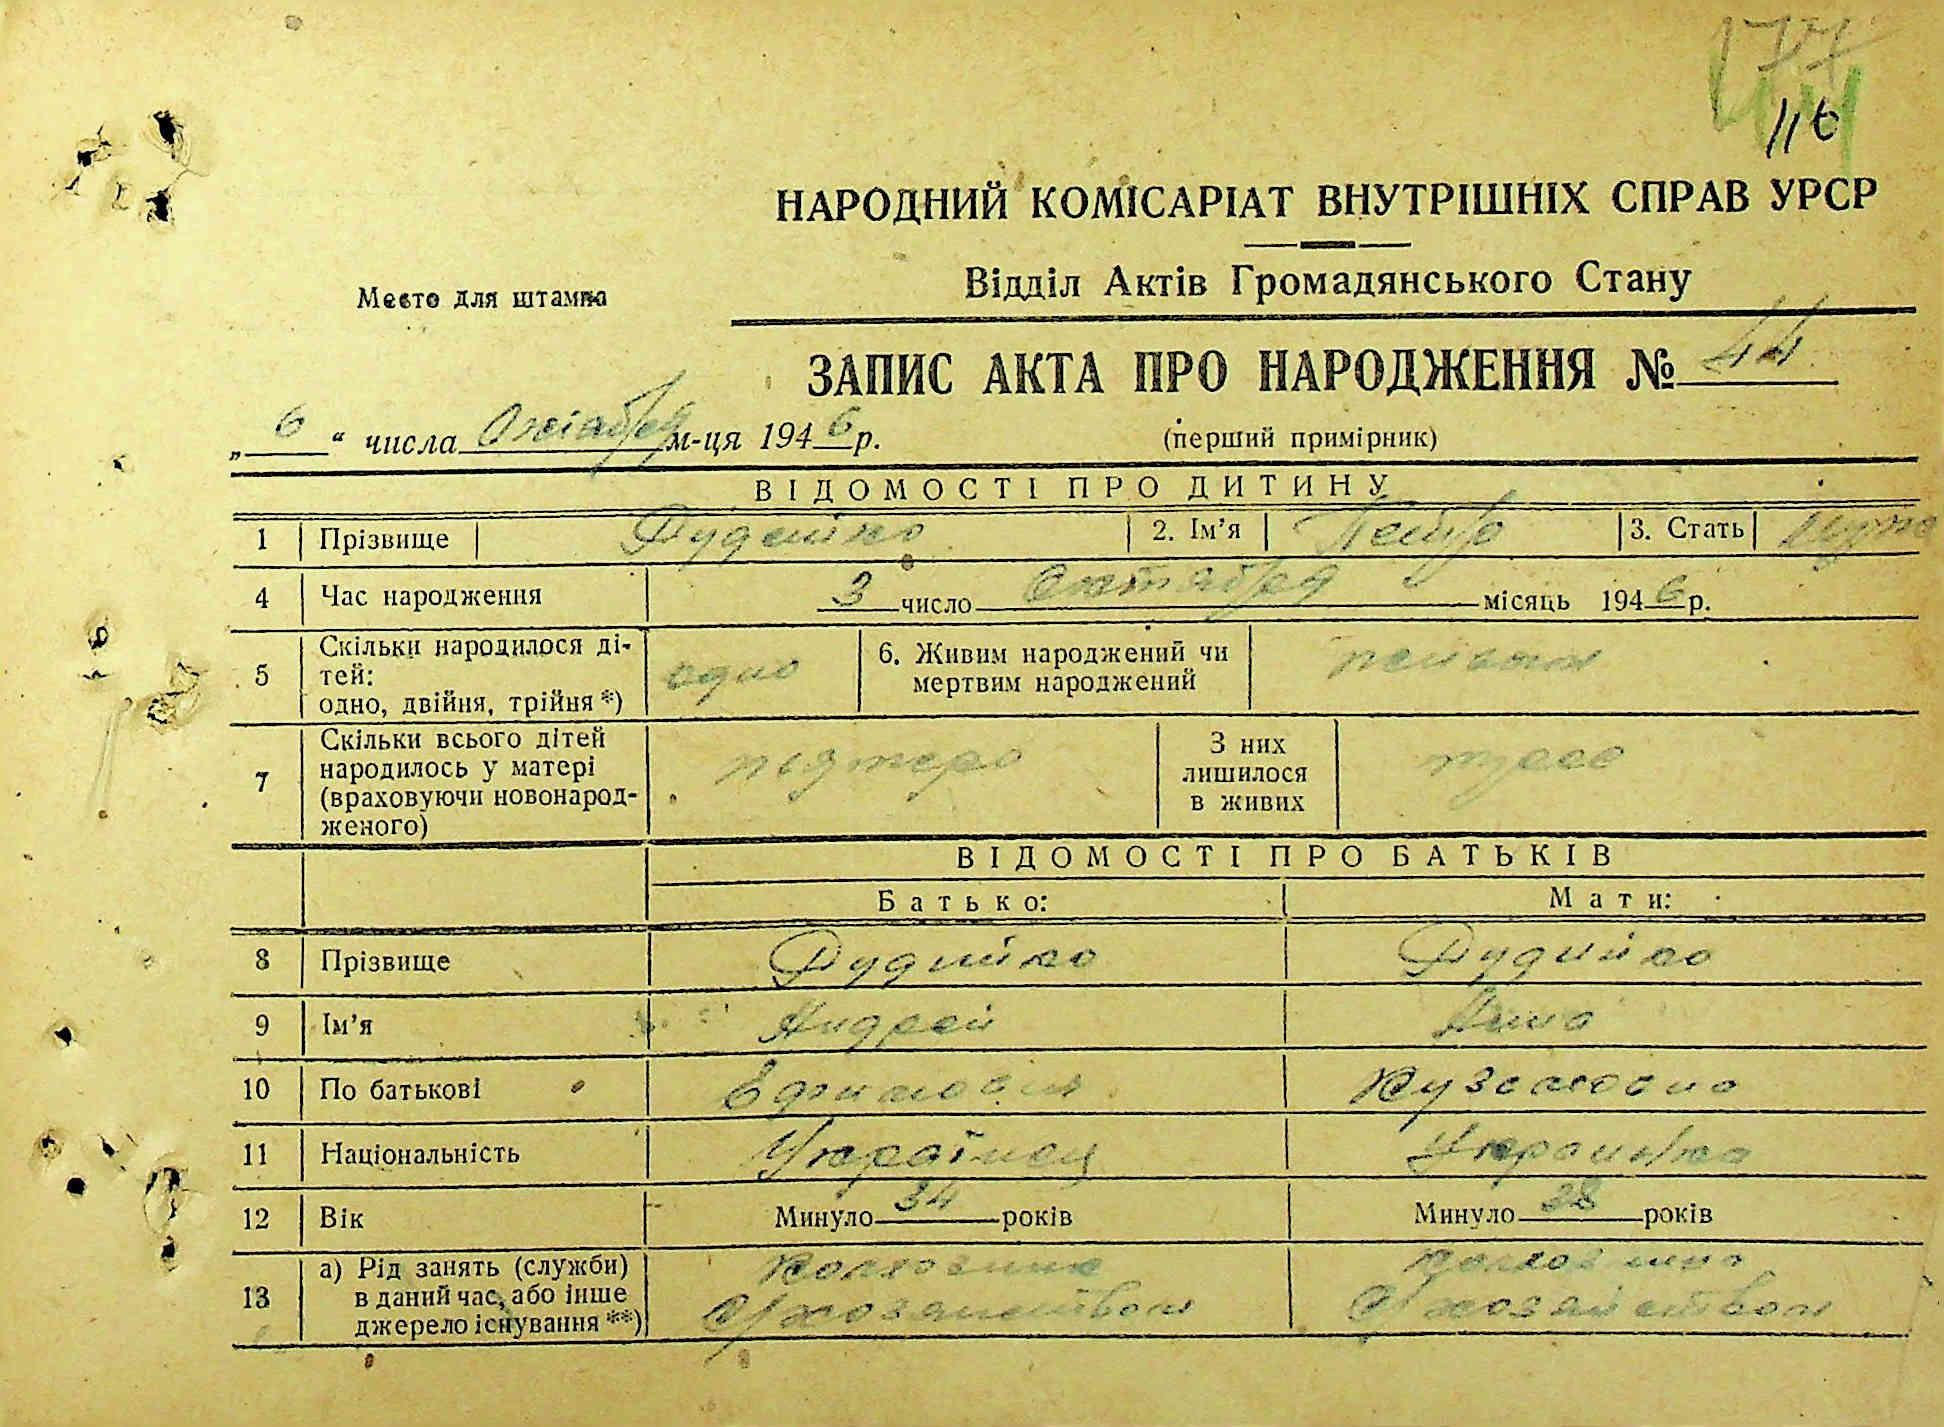 177
116
НАРОДНИЙ КОМІСАРІАТ ВНУТРІШНІХ СПРАВ УРСР
Відділ Актів Громадянського Стану
Место для штампа
ЗАПИС АКТА ПРО НАРОДЖЕННЯ № 44
„6“ числа м-ця 1946 р.
(перший примірник)
ВІДОМОСТІ ПРО ДИТИНУ
1 Прізвище 2. Ім'я Петро 3. Стать
4 Час народження 3 число Октября місяць 1946 р.
5 Скільки народилося ді-
тей:
одно, двійня, трійня *) одно
6. Живим народжений чи
мертвим народжений
7 Скільки всього дітей
народилось у матері
(враховуючи новонарод-
женого)
З них
лишилося
в живих
ВІДОМОСТІ ПРО БАТЬКІВ
Батько: Мати:
8 Прізвище
9 Ім'я Андрей Анна
10 По батькові Кузмовна
11 Національність Українец Украинка
12 Вік Минуло 34 років Минуло 28 років
13 а) Рід занять (служби)
в даний час, або інше
джерело існування **)
Колхозник